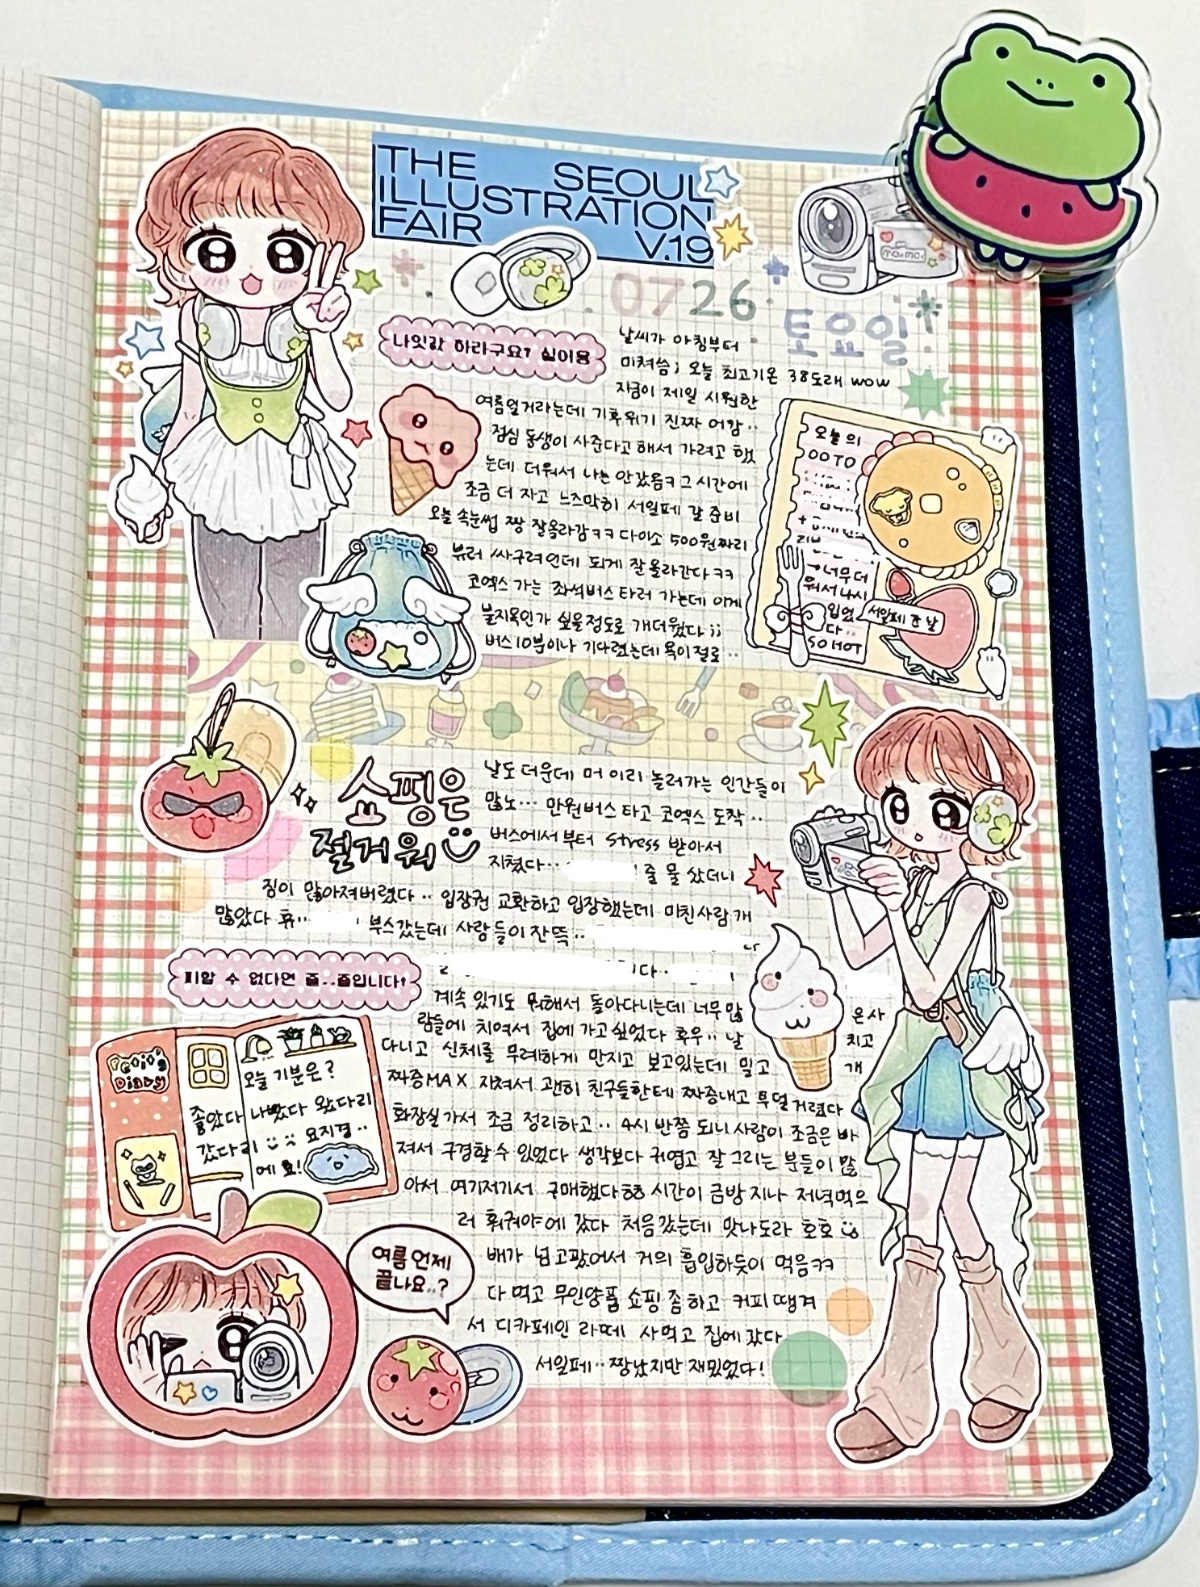 THE SEOUL
ILLUSTRATION
FAIR V.19
maimai
0726
토요일!
나잇값 하라구요? 싫어용
날씨가 아침부터
미쳐씀; 오늘 최고기온 38도래 wow
지금이 제일 시원한
여름일거라는데 기후위기 진짜 어캄..
점심 동생이 사준다고 해서 가려고 했
는데 더워서 나는 안갔음ㅋ 그 시간에
조금 더 자고 느즈막히 서일페 갈 준비
오늘 속눈썹 짱 잘올라감ㅋㅋ 다이소 500원짜리
뷰러 싸구려인데 되게 잘 올라간다ㅋㅋ
코엑스 가는 좌석버스 타러 가는데 이게
불지옥인가 싶을정도로 개더웠다;;
버스 10분이나 기다렸는데 욕이절로..
오늘의
OOTD
→너무더
워서 나시
입었
다..
SO HOT
서일페 룩 날
쇼핑은
즐거워
날도 더운데 머 이리 놀러가는 인간들이
많노... 만원버스 타고 코엑스 도착..
버스에서부터 stress 받아서
지쳤다.. 줄 물 샀더니
짐이 많아져버렸다.. 입장권 교환하고 입장했는데 미친사람 개
많았다 휴.. 부스갔는데 사람들이 잔뜩..
다..
피할 수 없다면 즐..즐입니다!
계속 있기도 뭐해서 돌아다니는데 너무 많은 사
람들에 치여서 집에 가고싶었다 후우.. 날 치고
다니고 신체를 무례하게 만지고 보고있는데 밀고 개
짜증MAX 지쳐서 괜히 친구들한테 짜증내고 투덜거렸다
화장실가서 조금 정리하고.. 4시 반쯤 되니 사람이 조금은 빠
져서 구경할 수 있었다 생각보다 귀엽고 잘 그리는 분들이 많
아서 여기저기서 구매했다ㅎㅎ 시간이 금방 지나 저녁먹으
러 훠궈야에 갔다 처음갔는데 맛나도라 호호
배가 넘고팠어서 거의 흡입하듯이 먹음ㅋㅋ
다 먹고 무인양품 쇼핑 좀 하고 커피땡겨
서 디카페인 라떼 사먹고 집에 갔다
서일페.. 짱났지만 재밌었다!
Diary
오늘 기분은?
좋았다 나빴다 왔다리
갔다리 요지경..
에효!
여름 언제
끝나요..?